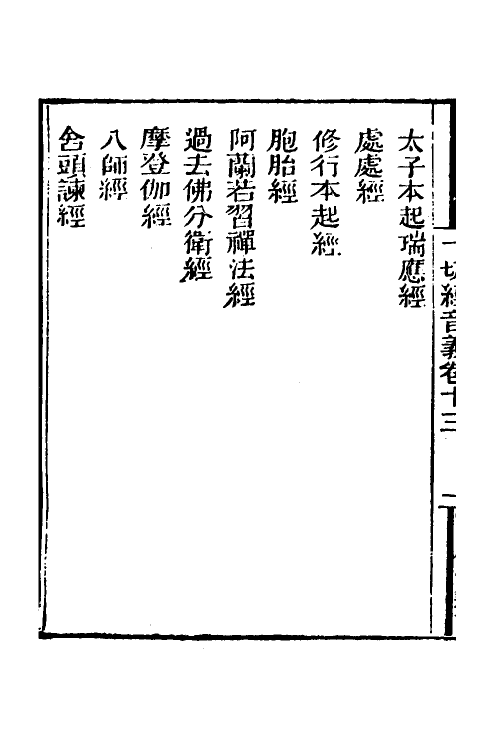 一切經音義卷十三
二
太子本起瑞應經
處處經
修行本起經
胞胎經
阿蘭若習禪法經
過去佛分衛經
摩登伽經
八師經
舍頭諫經